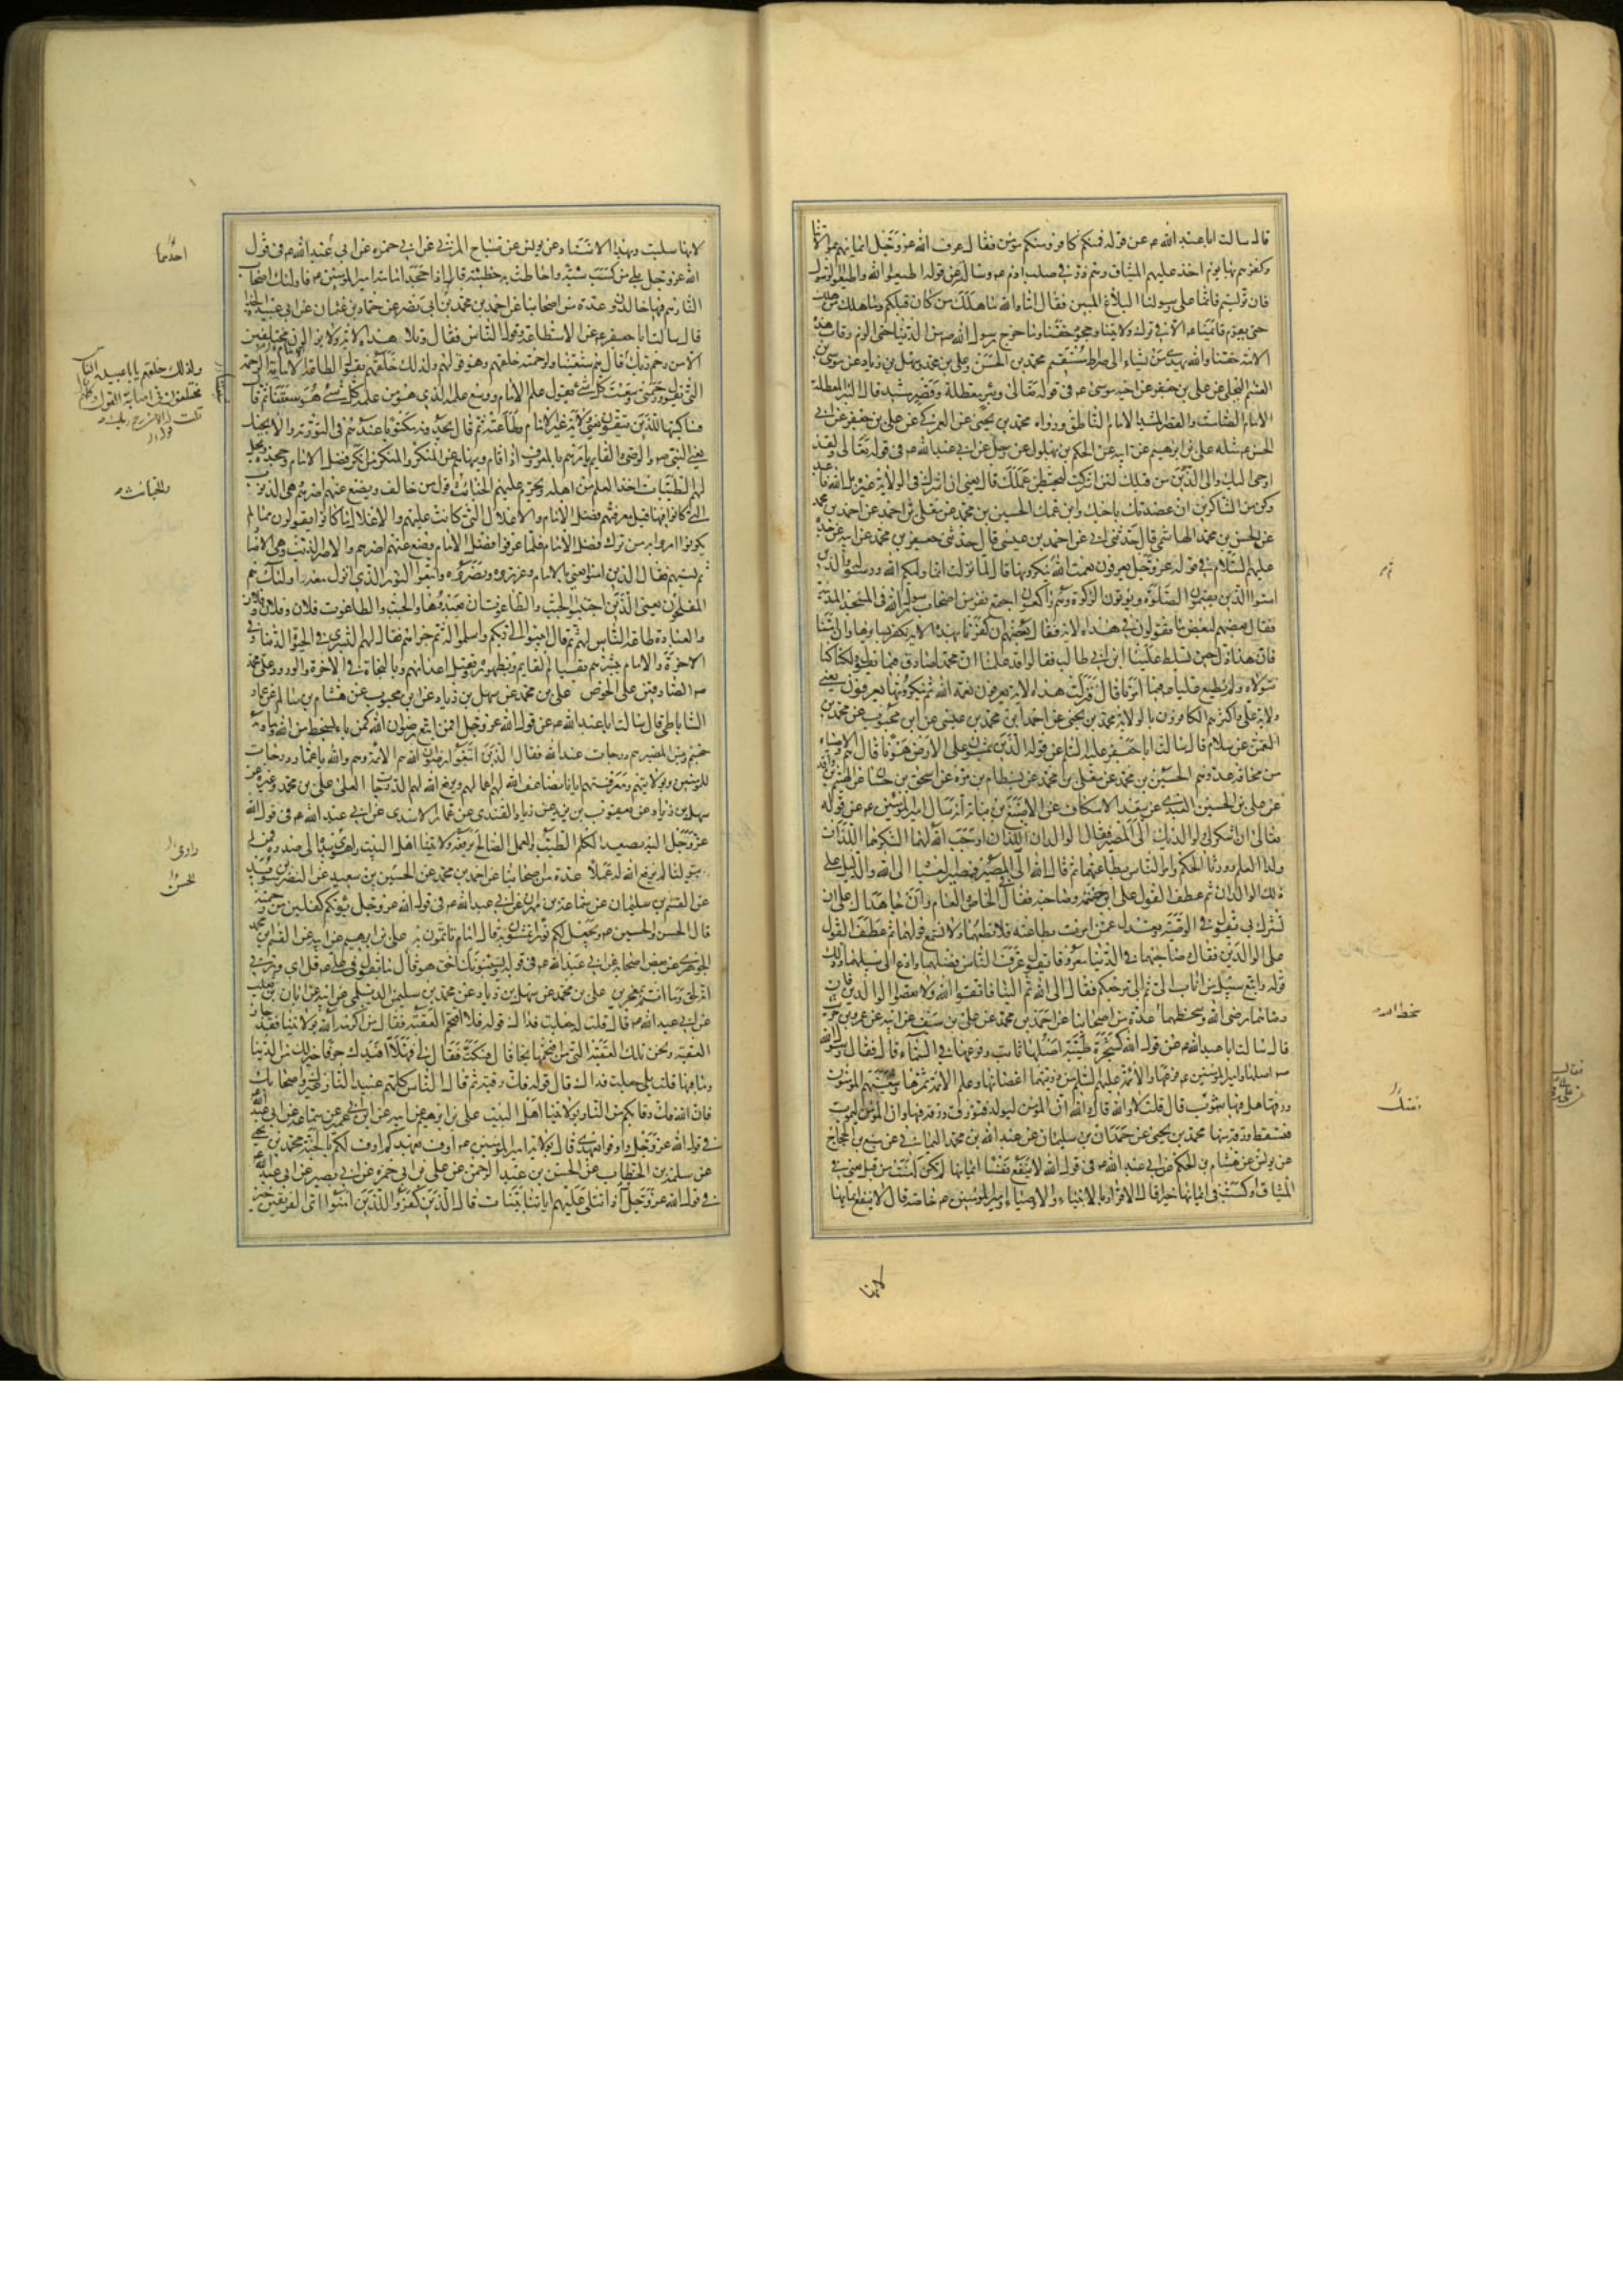 قال سالت ابا عبد الله ع عن قوله فمنكم كافر ومنكم مومن فقال عرف الله عز وجل ايمانهم بموالاتنا
وكفرهم بها يوم اخذ عليهم الميثاق وهم ذر في صلب ادم ع وسالته عن قوله اطيعوا الله واطيعوا الرسول
فان توليتم فانما على رسولنا البلاغ المبين فقال اما والله ما هلك من كان قبلكم وما هلك من هلك
حتى يقوم قائمنا ع الا في ترك ولايتنا وجحود حقنا وما خرج رسول الله ص من الدنيا حتى الزم رقاب هذه
الامة حقنا والله يهدي من يشاء الى صراط مستقيم محمد بن الحسن وعلي بن محمد عن سهل بن زياد عن موسى بن
القسم البجلي عن علي بن جعفر عن اخيه موسى ع في قوله تعالى وبئر معطلة وقصر مشيد قال البئر المعطلة
الامام الصامت والقصر المشيد الامام الناطق ورواه محمد بن يحيى عن العمركي عن علي بن جعفر عن ابي
الحسن ع مثله علي بن ابرهيم عن ابيه عن الحكم بن بهلول عن رجل عن ابي عبد الله ع في قوله تعالى ولقد
اوحى اليك والى الذين من قبلك لئن اشركت ليحبطن عملك قال يعني ان اشركت في الولاية غيره بل الله فاعبد
وكن من الشاكرين ان عضدتك باخيك وابن عمك الحسين بن محمد عن معلى بن محمد عن احمد بن محمد
عن الحسن بن محمد الهاشمي قال حدثني ابي عن احمد بن عيسى قال حدثني جعفر بن محمد عن ابيه عن جده
عليهم السلام في قوله عز وجل يعرفون نعمت الله ثم ينكرونها قال لما نزلت انما وليكم الله ورسوله والذين
امنوا الذين يقيمون الصلوة ويؤتون الزكوة وهم راكعون اجتمع نفر من اصحاب رسول الله في مسجد المدينة
فقال بعضهم لبعض ما تقولون في هذه الاية فقال بعضهم ان كفرنا بهذه الاية نكفر بسايرها وان امنا
فان هذا ذل حين يسلط علينا ابن ابي طالب فقالوا قد علمنا ان محمدا صادق فيما يقول ولكنا
نتولاه ولا نطيع عليا ع فيما امرنا قال فنزلت هذه الاية يعرفون نعمة الله ثم ينكرونها يعرفون يعني
ولاية علي واكثرهم الكافرون بالولاية محمد بن يحيى عن احمد بن محمد بن عيسى عن ابن محبوب عن محمد بن
النعمن عن سلام قال سالت ابا جعفر عليه السلم عن قوله الذين يمشون على الارض هونا قال هم الاوصياء
من مخافة عدوهم الحسين بن محمد عن معلى بن محمد عن بسطام بن مرة عن اسحق بن حسان عن الهيثم بن واقد
عن علي بن الحسين العبدي عن سعد الاسكاف عن الاصبغ بن نباتة انه سال امير المؤمنين ع عن قوله
تعالى ان اشكر لي ولوالديك الي المصير فقال الوالدان اللذان اوجب الله لهما الشكر هما اللذان
ولدا العلم وورثا الحكم وامر الناس بطاعتهما ثم قال الله الي المصير فمصير العباد الى الله والدليل على
ذلك الوالدان ثم عطف القول على ابن حنتمة وصاحبه فقال في الخاص والعام وان جاهداك على ان
تشرك بي يقول في الوصية وتعدل عمن امرت بطاعته فلا تطعهما ولا تسمع قولهما ثم عطف القول
على الوالدين فقال وصاحبهما في الدنيا معروفا يقول عرف الناس فضلهما وادع الى سبيلهما وذلك
قوله واتبع سبيل من اناب الي ثم الي مرجعكم فقال الى الله ثم الينا فاتقوا الله ولا تعصوا الوالدين فان
رضاهما رضى الله وسخطهما عدة من اصحابنا عن احمد بن محمد عن علي بن سيف عن ابيه عن عمرو بن حريث
قال سالت ابا عبد الله ع عن قول الله كشجرة طيبة اصلها ثابت وفرعها في السماء قال فقال رسول الله
ص اصلها وامير المؤمنين ع فرعها والائمة عليهم السلم من ذريتهما اغصانها وعلم الائمة ثمرتها وشيعتهم المؤمنون
ورقها هل فيها شوب قال قلت لا والله قال والله ان المؤمن ليولد فتورق ورقة فيها وان المؤمن ليموت
فتسقط ورقة منها محمد بن يحيى عن حمدان بن سليمان عن عبد الله بن محمد اليماني عن منيع بن الحجاج
عن يونس عن هشام بن الحكم عن ابي عبد الله ع في قول الله لا ينفع نفسا ايمانها لم تكن امنت من قبل يعني في
الميثاق او كسبت في ايمانها خيرا قال الاقرار بالانبياء والاوصياء وامير المؤمنين ع خاصة قال لا ينفع ايمانها
لانها
سخط الله
لانها سلبت وبهذا الاسناد عن يونس عن صباح المزني عن ابي حمزه عن ابي عبد الله ع في قول
الله عز وجل بلى من كسب سيئة واحاطت به خطيئته قال اذا جحد امامة امير المؤمنين ع فاولئك اصحاب
النار هم فيها خالدون عدة من اصحابنا عن احمد بن محمد بن ابي نصر عن حماد بن عثمان عن ابي عبيدة الحذاء
قال سالت ابا جعفر ع عن الاستطاعة وقول الناس فقال وتلا هذه الاية ولا يزالون مختلفين
الا من رحم ربك قال هم شيعتنا ولرحمته خلقهم وهو قوله ولذلك خلقهم يقول لطاعة الامام الرحمة
التي يقول ورحمتي وسعت كل شيء يقول علم الامام ووسع علمه الذي هو من علمه كل شيء هو شيعتنا ثم قال
فساكتبها للذين يتقون يعني ولاية غير الامام وطاعته ثم قال يجدونه مكتوبا عندهم في التورية والانجيل
يعني النبي ص والوصي والقايم يامرهم بالمعروف اذا قام وينهاهم عن المنكر والمنكر من انكر فضل الامام وجحده ويحل
لهم الطيبات اخذ العلم من اهله ويحرم عليهم الخبائث قول من خالف ويضع عنهم اصرهم وهي الذنوب
التي كانوا فيها قبل معرفتهم فضل الامام والاغلال التي كانت عليهم والاغلال ما كانوا يقولون مما لم
يكونوا امروا به من ترك فضل الامام فلما عرفوا فضل الامام وضع عنهم اصرهم والاصر الذنب وهي الاصار
ثم نسبهم فقال الذين امنوا يعني بالامام وعزروه ونصروه واتبعوا النور الذي انزل معه اولئك هم
المفلحون يعني الذين اجتنبوا الجبت والطاغوت ان يعبدوها والجبت والطاغوت فلان وفلان وفلان
والعبادة طاعة الناس لهم ثم قال انيبوا الى ربكم واسلموا له ثم جزاهم فقال لهم البشرى في الحيوة الدنيا وفي
الاخرة والامام يبشرهم بقيام القايم وبظهوره وبقتل اعدائهم وبالنجاة في الاخرة والورود على محمد
ص الصادقين على الحوض علي بن محمد عن سهل بن زياد عن ابن محبوب عن هشام بن سالم عن عمار
الساباطي قال سالت ابا عبد الله ع عن قول الله عز وجل افمن اتبع رضوان الله كمن باء بسخط من الله وماويه
جهنم وبئس المصير هم درجات عند الله فقال الذين اتبعوا رضوان الله هم الائمة وهم والله يا عمار درجات
للمؤمنين وبولايتهم ومعرفتهم ايانا يضاعف الله لهم اعمالهم ويرفع الله لهم الدرجات العلى علي بن محمد وغيره عن
سهل بن زياد عن يعقوب بن يزيد عن زياد القندي عن عمار الاسدي عن ابي عبد الله ع في قول الله
عز وجل اليه يصعد الكلم الطيب والعمل الصالح يرفعه ولايتنا اهل البيت واهوى بيده الى صدره فمن لم
يتولنا لم يرفع الله له عملا عدة من اصحابنا عن احمد بن محمد عن الحسين بن سعيد عن النضر بن سويد
عن القسم بن سليمان عن سماعة بن مهران عن ابي عبد الله ع في قول الله عز وجل يؤتكم كفلين من رحمته
قال الحسن والحسين ع ويجعل لكم نورا تمشون به قال امام تاتمون به علي بن ابرهيم عن ابيه عن القسم بن محمد
الجوهري عن بعض اصحابه عن ابي عبد الله ع في قوله يستنبئونك احق هو قال ما تقول في علي ع قل اي وربي
انه لحق وما انتم بمعجزين علي بن محمد عن سهل بن زياد عن محمد بن سليمن الديلمي عن ابيه عن ابان بن تغلب
عن ابي عبد الله ع قال قلت له جعلت فداك قوله فلا اقتحم العقبة فقال من اكرمه الله بولايتنا فقد جاز
العقبة ونحن تلك العقبة التي من اقتحمها نجا قال فسكت فقال لي فهلا افيدك حرفا خير لك من الدنيا
وما فيها قلت بلى جعلت فداك قال قوله فك رقبة ثم قال الناس كلهم عبيد النار غيرك واصحابك
فان الله فك رقابكم من النار بولايتنا اهل البيت علي بن ابرهيم عن ابيه عن ابن ابي عمير عن سماعة عن ابي عبد الله
في قول الله عز وجل واوفوا بعهدي قال بولاية امير المؤمنين ع اوف بعهدكم اوف لكم بالجنة محمد بن يحيى
عن سلمة بن الخطاب عن الحسن بن عبد الرحمن عن علي بن ابي حمزه عن ابي بصير عن ابي عبد الله
في قول الله عز وجل واذا تتلى عليهم اياتنا بينات قال الذين كفروا للذين امنوا اي الفريقين خير
احدهما
والخبائث